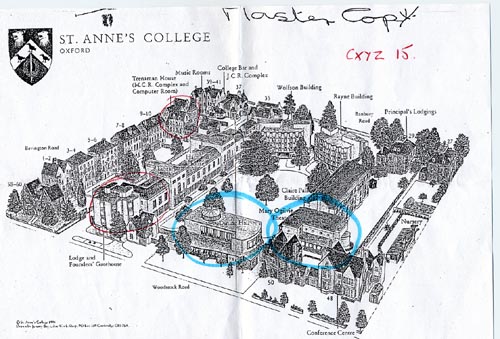 Master Copy.
ST. ANNE'S COLLEGE
OXFORD
CXYZ 15.
College Bar and
J.C.R. Complex
Music Rooms
Tenterman House
(M.C.R. Complex and
Computer Room)
39-41
37
35
Wolfson Building
Rayne Building
Banbury
Road
Principal's Lodgings
9-10
7-8
5-6
3-4
1-2
Bevington Road
58-60
Claire Pal
Building
Mary Ogilvie
Nursery
Lodge and
Founders' Gatehouse
Woodstock Road
50
48
Conference Centre